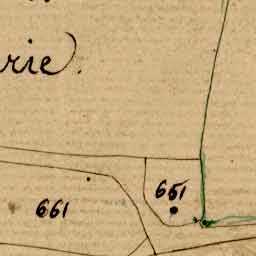 rie.
651
661